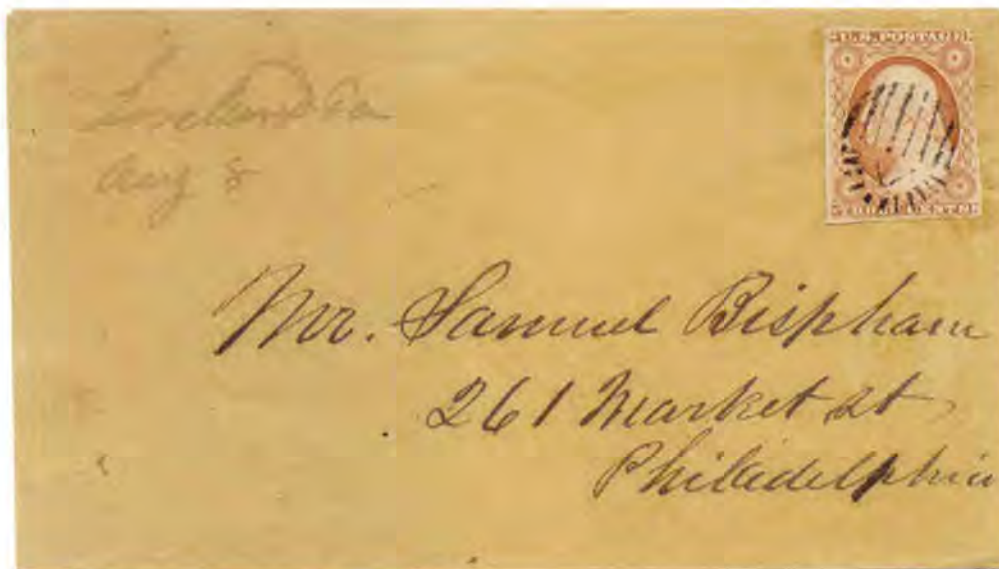 Aug 8
U.S. POSTAGE
THREE CENTS
Mr. Samuel Bispham
261 Market St
Philadelphia